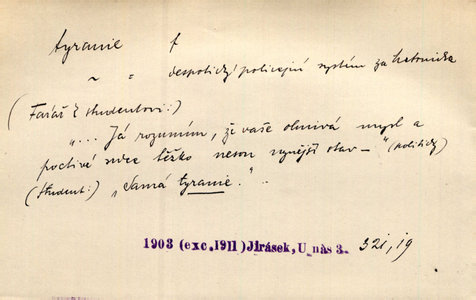 tyranie f
~ = despotický policejní systém za Metternicha
(Farář k studentovi:)
"... Já rozumím, že vaše ohnivá mysl a
poctivé srdce těžko nesou nynější stav –" (politický)
(Student:) "Samá tyranie." ..
1903 (exc. 1911) Jirásek, U nás 3. 321, 19